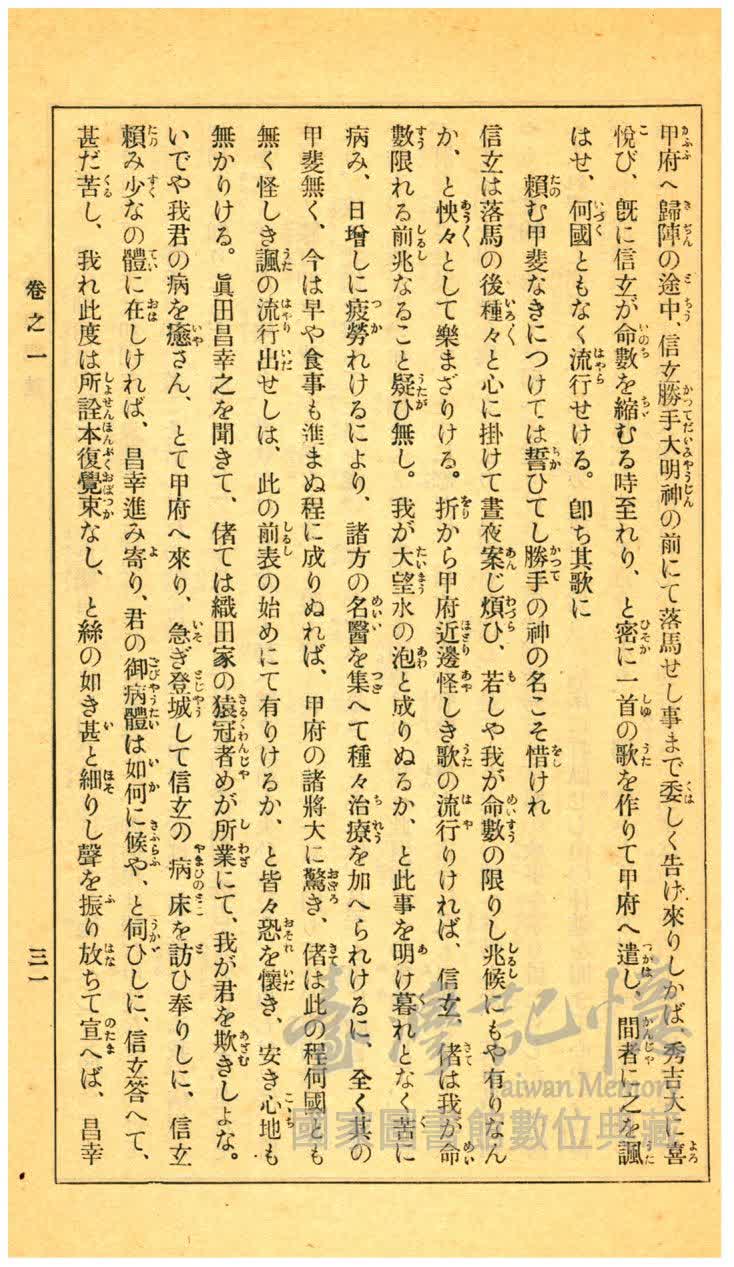 甲府へ歸陣の途中、信玄勝手大明神の前にて落馬せし事まで委しく告げ來りしかば、秀吉大に喜
悅び、旣に信玄が命數を縮むる時至れり、と密に一首の歌を作りて甲府へ遣し、間者に之を諷
はせ、何國ともなく流行せける。卽ち其歌に
賴む甲斐なきにつけては誓ひてし勝手の神の名こそ惜けれ
信玄は落馬の後種々と心に掛けて晝夜案じ煩ひ、若しや我が命數の限りし兆候にもや有りなん
か、と怏々として樂まざりける。折から甲府近邊怪しき歌の流行りければ、信玄、偖は我が命
數限れる前兆なること疑ひ無し。我が大望水の泡と成りぬるか、と此事を明け暮れとなく苦に
病み、日增しに疲勞れけるにより、諸方の名醫を集へて種々治療を加へられけるに、全く其の
甲斐無く、今は早や食事も進まぬ程に成りぬれば、甲府の諸將大に驚き、偖は此の程何國とも
無く怪しき諷の流行出せしは、此の前表の始めにて有りけるか、と皆々恐を懷き、安き心地も
無かりける。眞田昌幸之を聞きて、偖ては織田家の猿冠者めが所業にて、我が君を欺きしよな。
いでや我君の病を癒さん、とて甲府へ來り、急ぎ登城して信玄の病床を訪ひ奉りしに、信玄
賴み少なの體に在しければ、昌幸進み寄り、君の御病體は如何に候や、と伺ひしに、信玄答へて、
甚だ苦し、我れ此度は所詮本復覺束なし、と絲の如き甚と細りし聲を振り放ちて宣へば、昌幸
卷之一
三一
臺灣記憶
Taiwan Memory
國家圖書館數位典藏